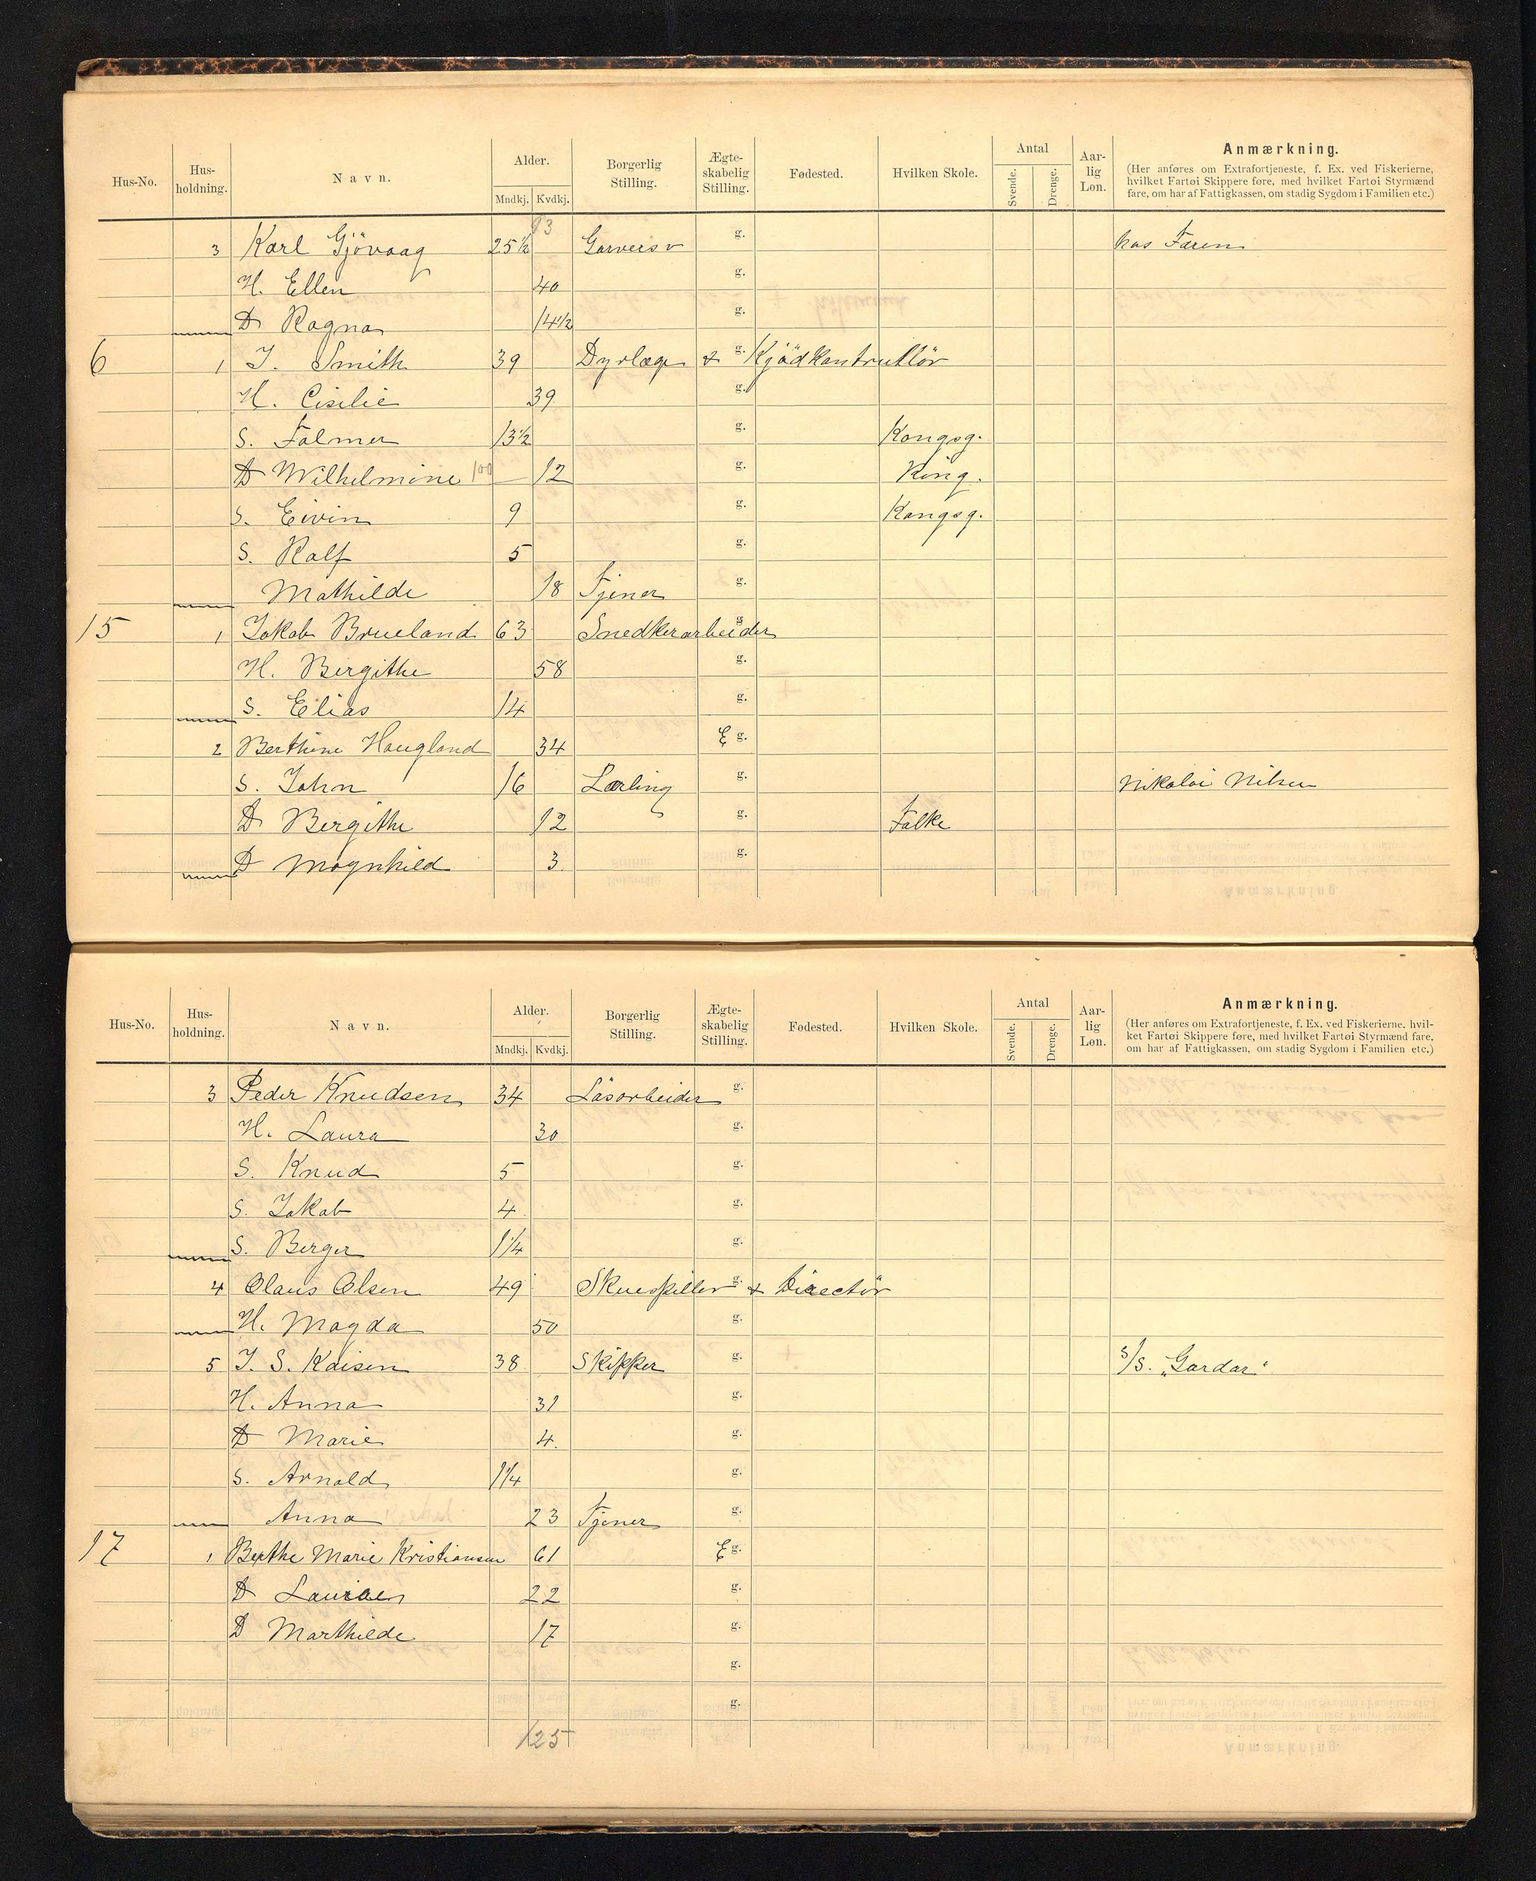 Hus-No. Hus-holdning. Navn. Alder. Mndkj. Kvdkj. Borgerlig Stilling. Ægte-skabelig Stilling. Fødested. Hvilken Skole. Antal Svende. Drenge. Aar-lig Løn. Anmærkning.
(Her anføres om Extrafortjeneste, f. Ex. ved Fiskerierne,
hvilket Fartøi Skippere føre, med hvilket Fartøi Styrmænd
fare, om har af Fattigkassen, om stadig Sygdom i Familien etc.)
93
3 Karl Gjövaag 25½ Garversv g. hos Faren
H. Ellen 40 g.
D Ragna 14½ g.
6 1 J. Smith 39 Dyrlæge & g. Kjödkontrullör
H. Cisilie 39 g.
S. Falmer 13½ g. Kongsg.
D Wilhelmine 100 12 g. King.
S. Eivin 9 g. Kongsg.
S. Ralf 5 g.
Mathilde 18 Tjener g.
15 1 Jakob Brueland 63 Snedkerarbeider g.
H. Bergithe 58 g.
S. Elias 14 g.
2 Berthine Haugland 34 E g.
S. John 16 Lærling g. Nikolai Nilsen
D Bergithe 12 g. Folke
D Magnhild 3 g.
Hus-No. Hus-holdning. Navn. Alder. Mndkj. Kvdkj. Borgerlig Stilling. Ægte-skabelig Stilling. Fødested. Hvilken Skole. Antal Svende. Drenge. Aar-lig Løn. Anmærkning.
(Her anføres om Extrafortjeneste, f. Ex. ved Fiskerierne. hvil-
ket Fartøi Skippere føre, med hvilket Fartøi Styrmænd fare,
om har af Fattigkassen, om stadig Sygdom i Familien etc.)
3 Peder Knudsen 34 Läsarbeider g.
H. Laura 30 g.
S. Knud 5 g.
S. Jakob 4 g.
S. Berger 1¼ g.
4 Olaus Olsen 49 Skuespiller g. & Directör
H. Magda 50 g.
5 J. S. Kaisen 38 Skipper g. S/S. „Gardar"
H. Anna 31 g.
D Marie 4 g.
S. Arnold 1¼ g.
Anna 23 Tjener g.
17 1 Berthe Marie Kristiansen 61 E g.
D 22 g.
D Marthilde 17 g.
g.
g.
125